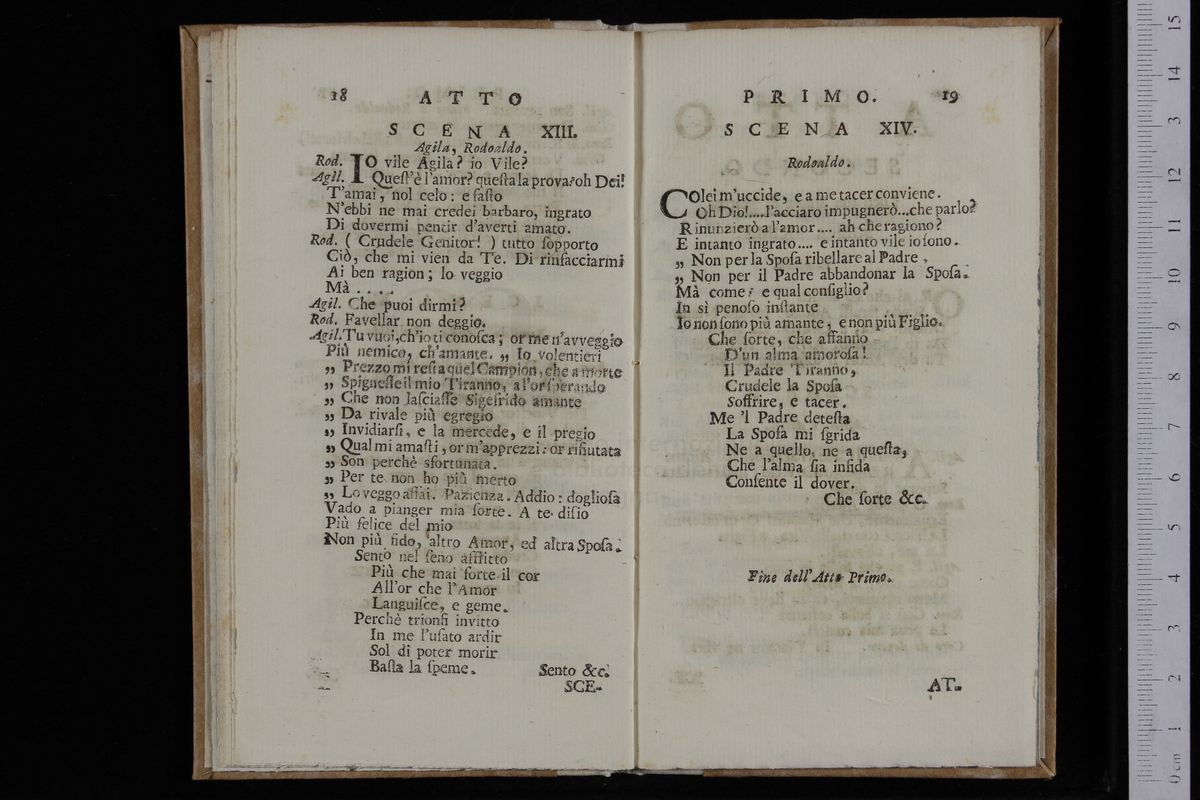 18 ATTO
SCENA XIII.
Agila, Rodoaldo.
Rod. IO vile Agila? io Vile?
Agil. Queſt'è l'amor? queſta la prova? oh Dei!
T'amai, nol celo: e faſto
N'ebbi ne mai credei barbaro, ingrato
Di dovermi pentir d'averti amato.
Rod. ( Crudele Genitor! ) tutto ſopporto
Ciò, che mi vien da Te. Di rinfacciarmi
Ai ben ragion; lo veggio
Mà . . . .
Agil. Che puoi dirmi?
Rod. Favellar non deggio.
Agil. Tu vuoi, ch'io ti conoſca; or me n'avveggio
Più nemico, ch'amante. „ Io volentieri
„ Prezzo mi reſi a quel Campion, che a morte
„ Spigneſſe il mio Tiranno, a l'or ſperando
„ Che non laſciaſſe Sigefrido amante
„ Da rivale più egregio
„ Invidiarſi, e la mercede, e il pregio
„ Qual mi amaſti, or m'apprezzi: or rifiutata
„ Son perchè sfortunata.
„ Per te non ho più merto
„ Lo veggo aſſai. Pazienza. Addio: doglioſa
Vado a pianger mia ſorte. A te diſio
Più felice del mio
Non più fido, altro Amor, ed altra Spoſa.
Sento nel ſeno afflitto
Più che mai forte il cor
All'or che l'Amor
Languiſce, e geme.
Perchè trionfi invitto
In me l'uſato ardir
Sol di poter morir
Baſta la ſpeme. Sento &c.
SCE-
PRIMO. 19
SCENA XIV.
Rodoaldo.
COlei m'uccide, e a me tacer conviene.
Oh Dio!....l'acciaro impugnerò...che parlo?
Rinunzierò a l'amor.... ah che ragiono?
E intanto ingrato.... e intanto vile io ſono.
„ Non per la Spoſa ribellare al Padre,
„ Non per il Padre abbandonar la Spoſa.
Mà come? e qual conſiglio?
In sì penoſo inſtante
Io non ſono più amante, e non più Figlio.
Che ſorte, che affanno
D'un alma amoroſa!
Il Padre Tiranno,
Crudele la Spoſa
Soffrire, e tacer.
Me 'l Padre deteſta
La Spoſa mi ſgrida
Ne a quello, ne a queſta,
Che l'alma ſia infida
Conſente il dover.
Che ſorte &c.
Fine dell'Atto Primo.
AT-
0 cm 1 2 3 4 5 6 7 8 9 10 11 12 13 14 15